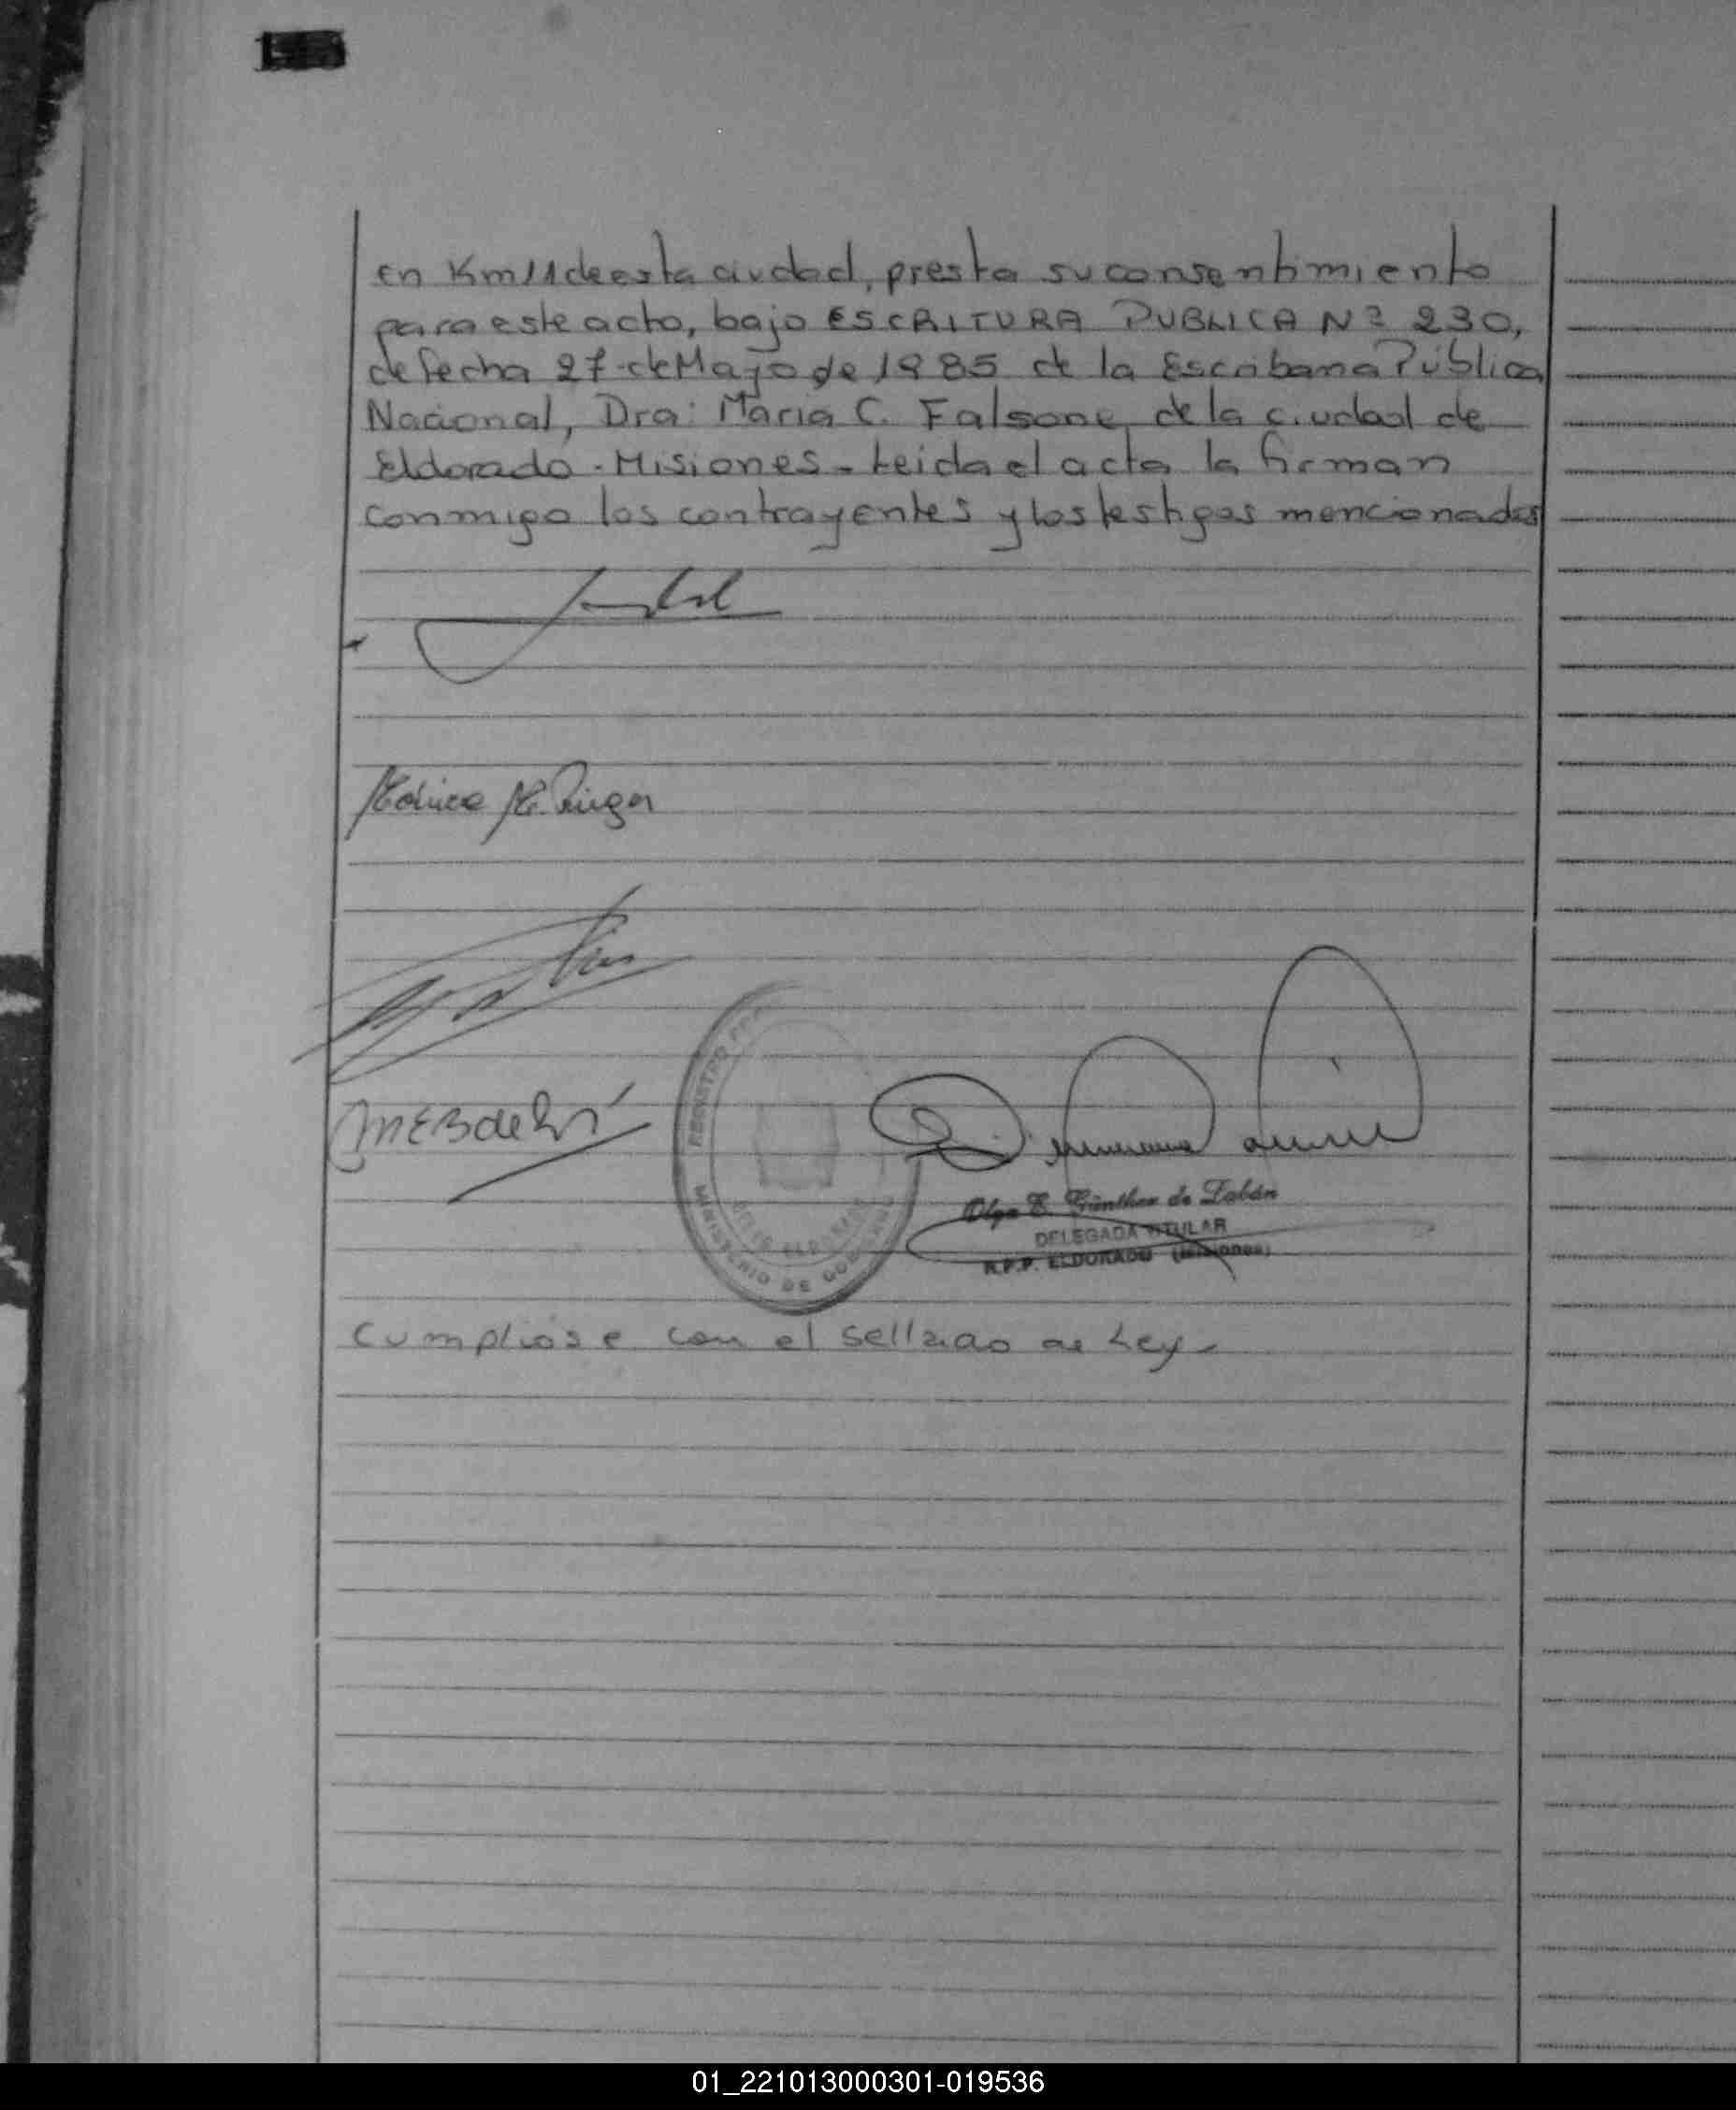 en Km 11 de esta ciudad, presta su consentimiento
para este acto, bajo ESCRITURA PUBLICA Nº 230,
de fecha 27-de Mayo de 1985 de la Escribana Pública
Nacional, Dra: María C. Falsone, de la ciudad de
Eldorado-Misiones-Leida el acta la firman
conmigo los contrayentes y los testigos mencionados
REGISTRO
MINISTERIO DE GOBIERNO
Olga E. Günther de Zabán
DELEGADA TITULAR
R.P.P. ELDORADO (Misiones)
Cumplióse con el sellado de Ley-
01_221013000301-019536